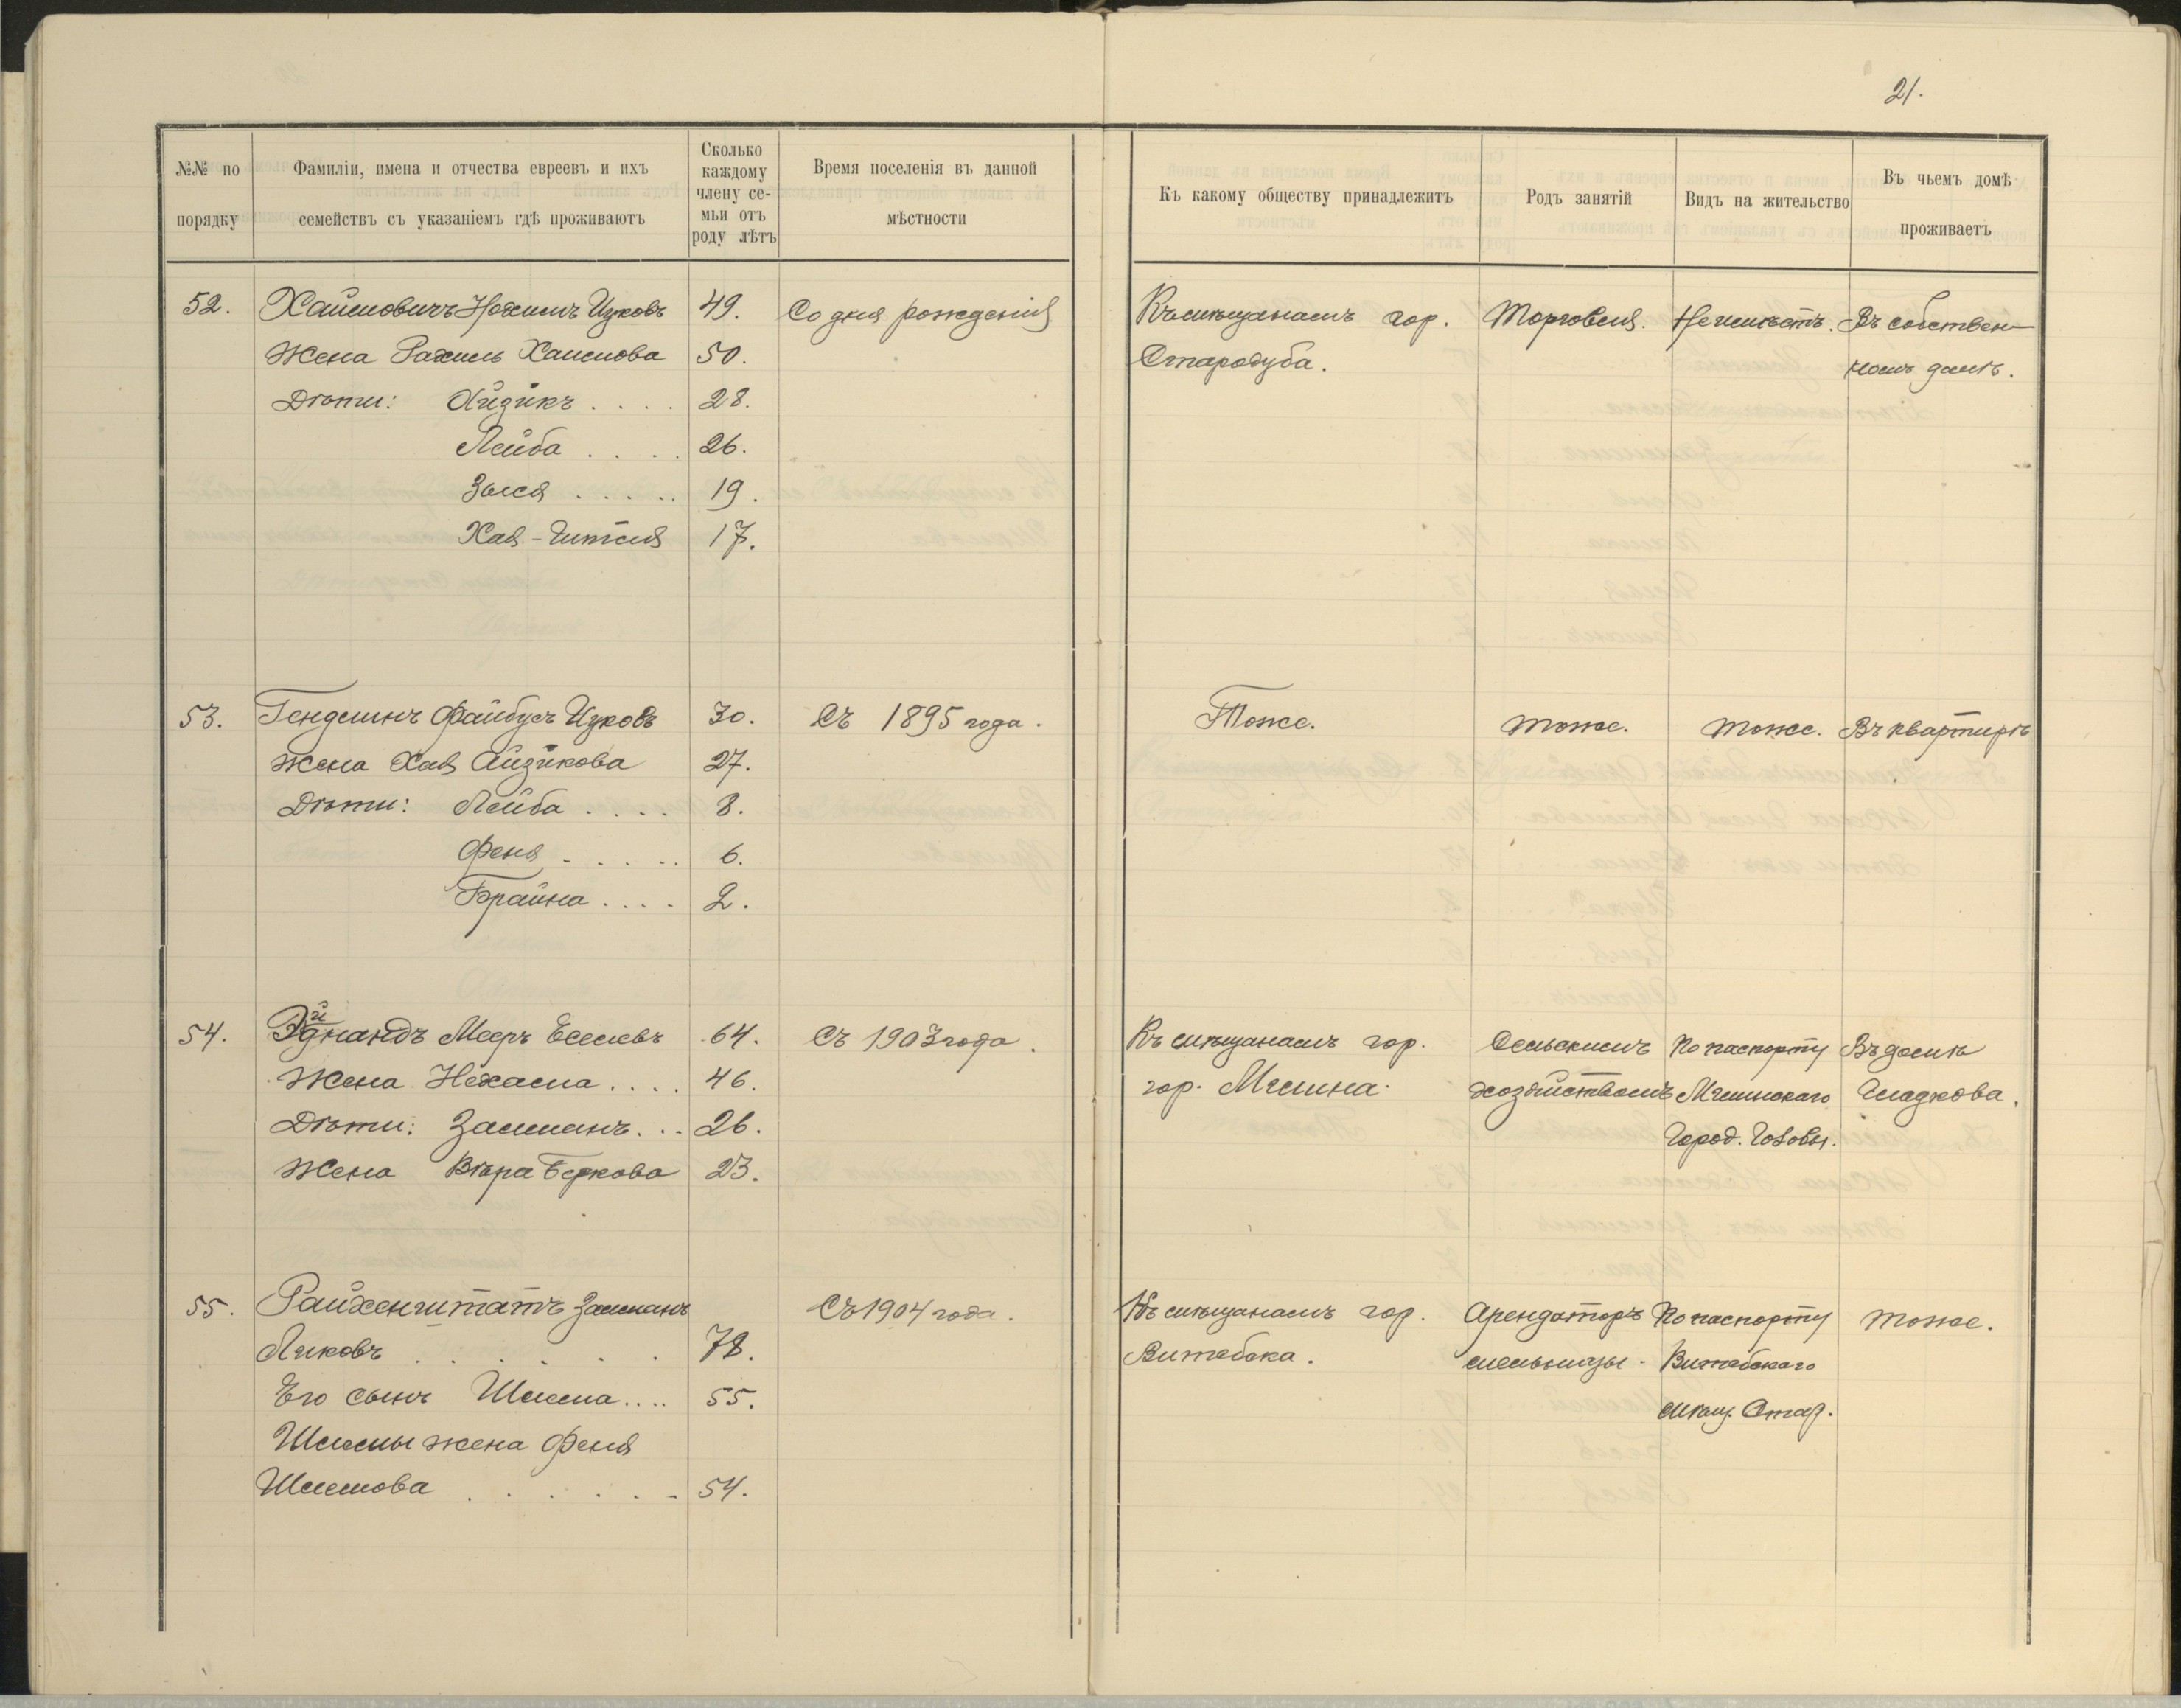 21.
№№ по порядку
Фамиліи, имена и отчества евреевъ и ихъ семействъ съ указаніемъ гдѣ проживаютъ
Сколько каждому члену семьи отъ роду лѣтъ
Время поселенія въ данной мѣстности
Къ какому обществу принадлежитъ
Родъ занятій
Видъ на жительство
Въ чьемъ домѣ проживаетъ
52. Хаимовичъ Нохимъ Ицковъ 49. Со дня рожденія Къ мѣщанамъ гор. Торговля. Не имѣетъ. Въ собствен-
Жена Рахиль Хаимова 50. Стародуба. номъ домѣ.
Дѣти: Айзикъ .... 28.
Лейба .... 26.
Зься ..... 19.
Хая-Гитля 17.
53. Гендлинъ Файбусъ Ицковъ 30. Съ 1895 года. Тоже. Тоже. Тоже. Въ квартирѣ
Жена Хая Айзикова 27.
Дѣти: Лейба .... 8.
Феня ..... 6.
Брайна .... 2.
54. Меер Еселевъ 64. Съ 1903 года. Къ мѣщанамъ гор. Сельскимъ По паспорту Въ домѣ
Жена Нехама .... 46. гор. Мглина. хозяйствомъ Мглинскаго Гладкова.
Дѣти: Залманъ... 26. Город.
Жена Вѣра Беркова 23.
55. Райхенштатъ Залманъ Съ 1904 года. Къ мѣщанамъ гор. Арендаторъ По паспорту Тоже.
Ицковъ ...... 78. Витебска. мельницы. Витебскаго
Его сынъ Шлема.... 55. мѣщ. Стар.
Шлемы жена Феня
Шлемова ...... 54.